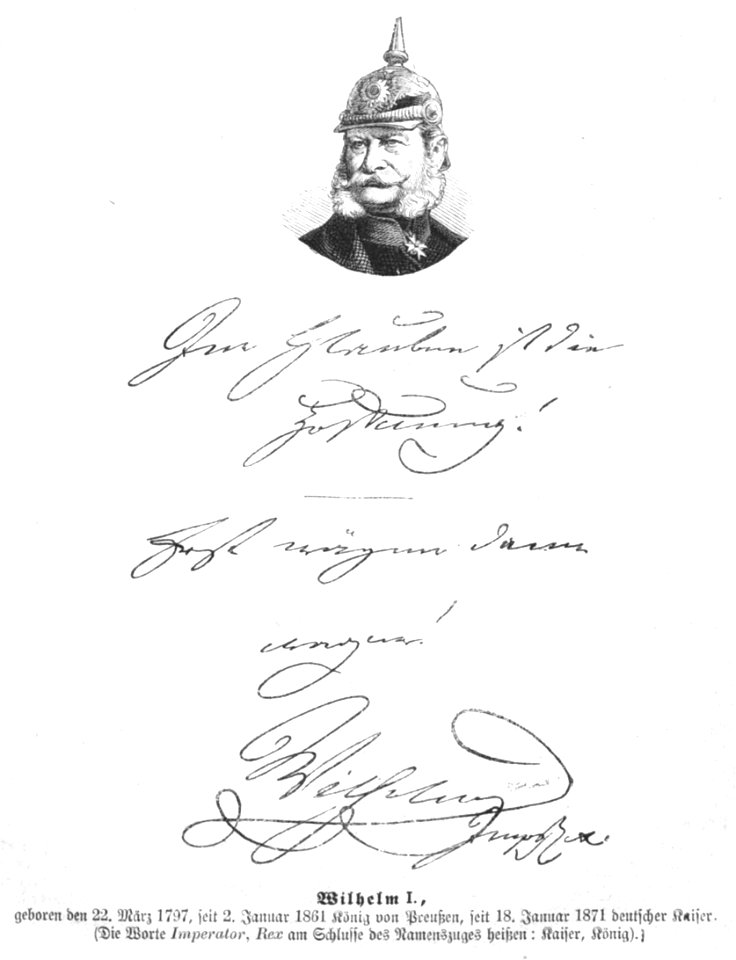 Im Glauben ist die
Hoffnung!
Erst wägen dann
wagen!
Wilhelm
Imp Rex.
Wilhelm I.,
geboren den 22. März 1797, seit 2. Januar 1861 König von Preußen, seit 18. Januar 1871 deutscher Kaiser.
(Die Worte Imperator, Rex am Schlusse des Namenszuges heißen: Kaiser, König).)